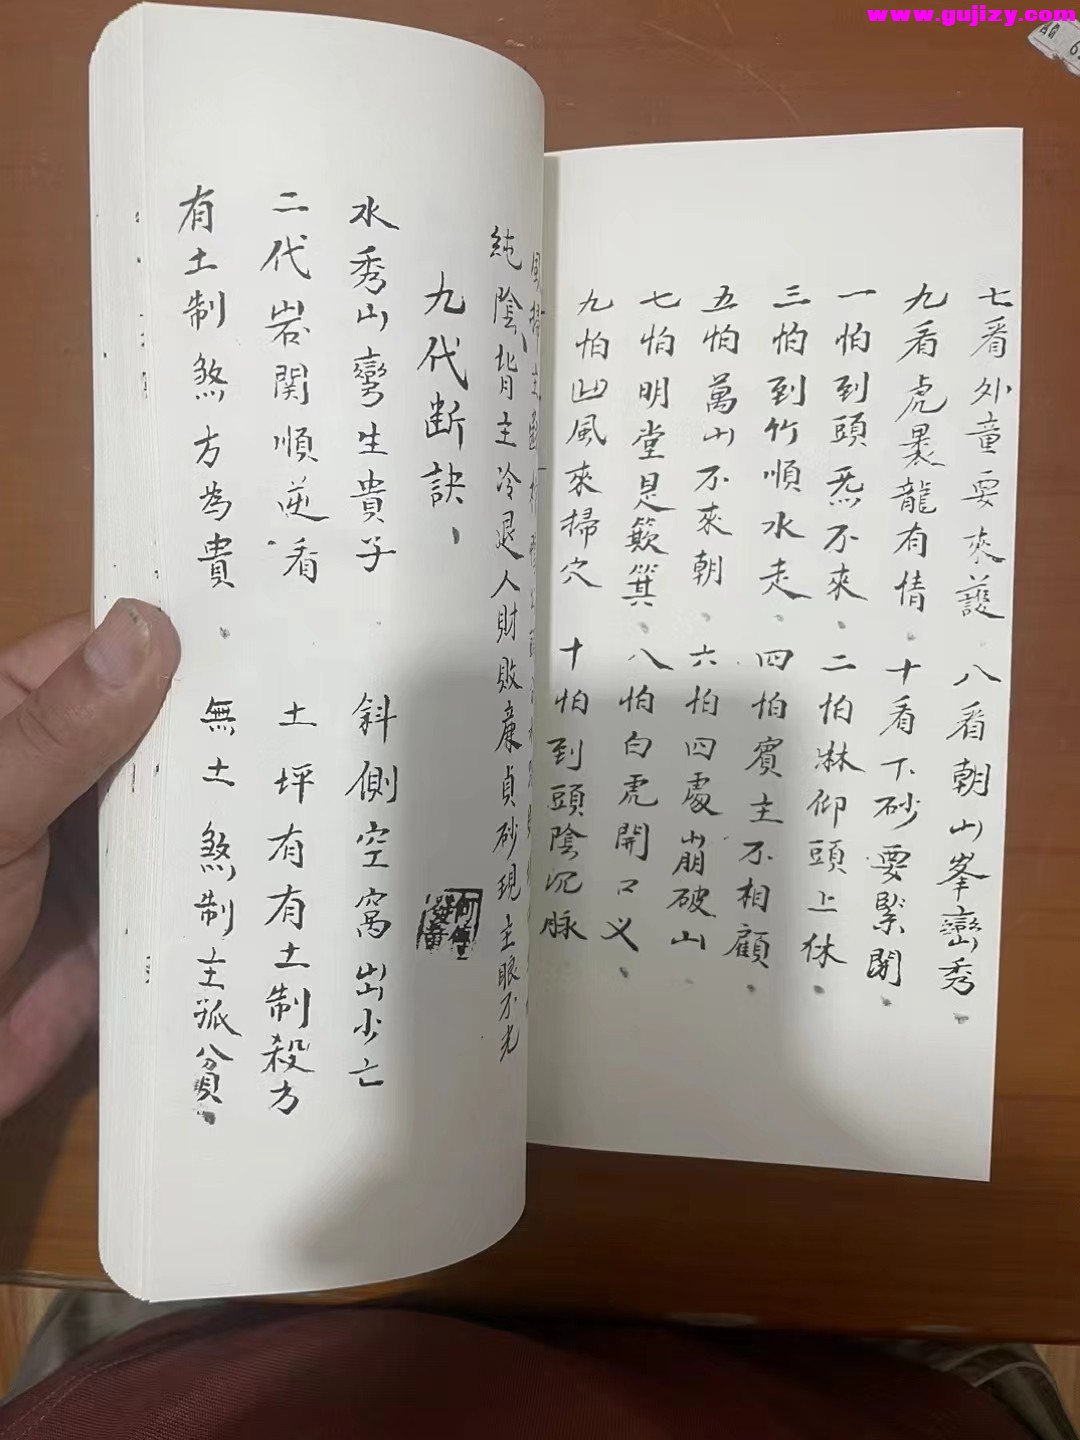 www.gujizy.com
七看外童要來護
八看朝山峯巒秀
九看虎裏龍有情
十看下砂要緊閉
一怕到頭炁不來
二怕淋仰頭上休
三怕到竹順水走
四怕賓主不相顧
五怕萬山不來朝
六怕四處崩破山
七怕明堂是欺箕
八怕白虎開口义
九怕凹風來掃穴
十怕到頭陰沉脈
純陰背主冷退人財敗亷貞砂現主眼不光
九代断訣
水秀山彎生貴子
斜側空窩出少亡
二代岩関順逆看
土坪有有土制殺方
有土制煞方為貴
無土煞制主孤貧